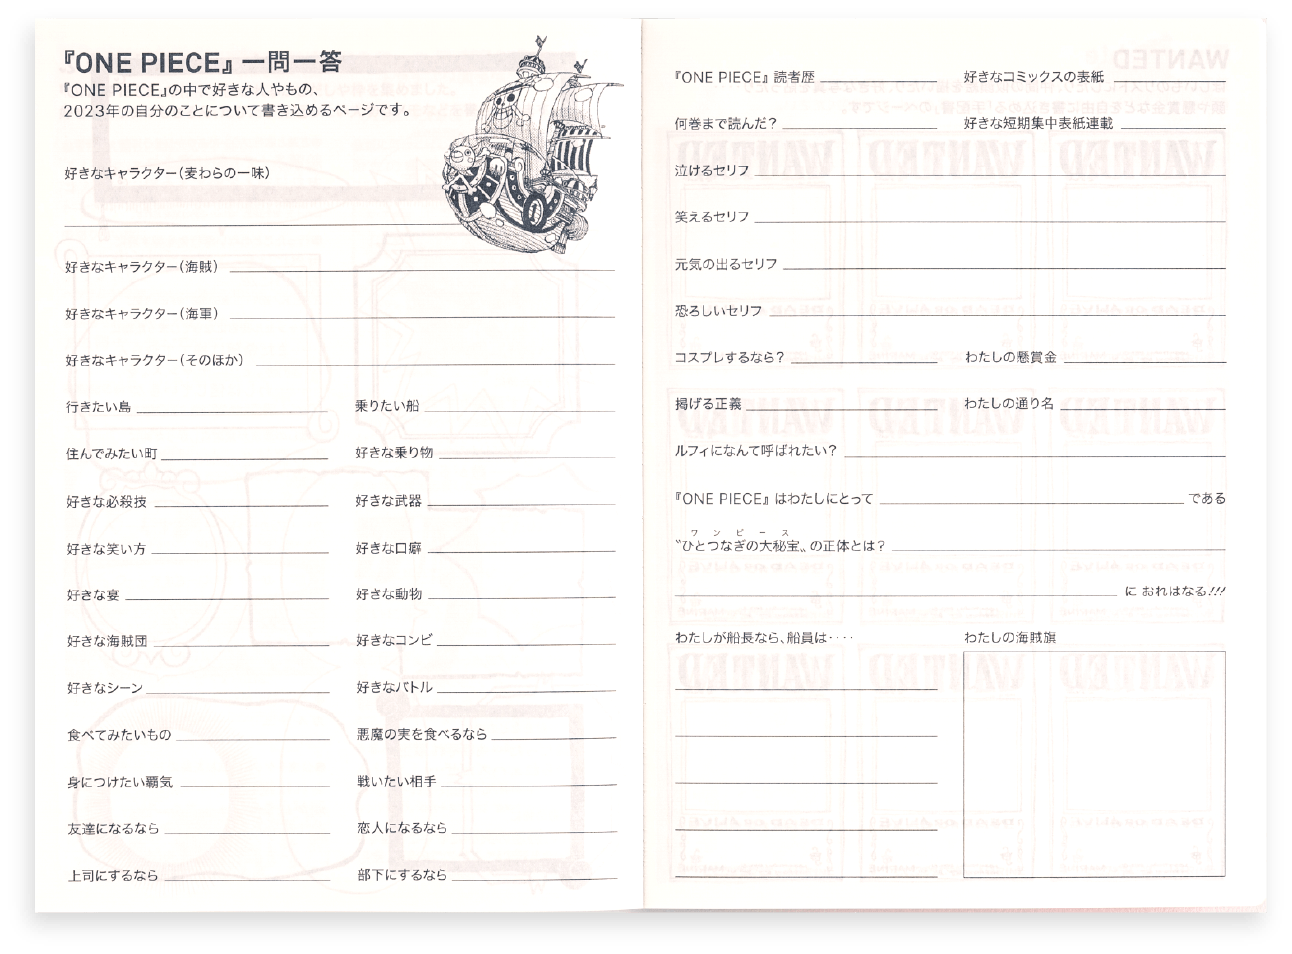 『ONE PIECE』一問一答
『ONE PIECE』の中で好きな人やもの、
2023年の自分のことについて書き込めるページです。
好きなキャラクター（麦わらの一味）
好きなキャラクター（海賊）
好きなキャラクター（海軍）
好きなキャラクター（そのほか）
行きたい島
乗りたい船
住んでみたい町
好きな乗り物
好きな必殺技
好きな武器
好きな笑い方
好きな口癖
好きな宴
好きな動物
好きな海賊団
好きなコンビ
好きなシーン
好きなバトル
食べてみたいもの
悪魔の実を食べるなら
身につけたい覇気
戦いたい相手
友達になるなら
恋人になるなら
上司にするなら
部下にするなら
『ONE PIECE』読者歴
好きなコミックスの表紙
何巻まで読んだ？
好きな短期集中表紙連載
泣けるセリフ
笑えるセリフ
元気の出るセリフ
恐ろしいセリフ
コスプレするなら？
わたしの懸賞金
掲げる正義
わたしの通り名
ルフィになんて呼ばれたい？
『ONE PIECE』はわたしにとって である
ワンピース
〝ひとつなぎの大秘宝〟の正体とは？
に おれはなる!!!
わたしが船長なら、船員は‥‥
わたしの海賊旗
WANTED
WANTED WANTED WANTED
WANTED WANTED WANTED
WANTED WANTED WANTED